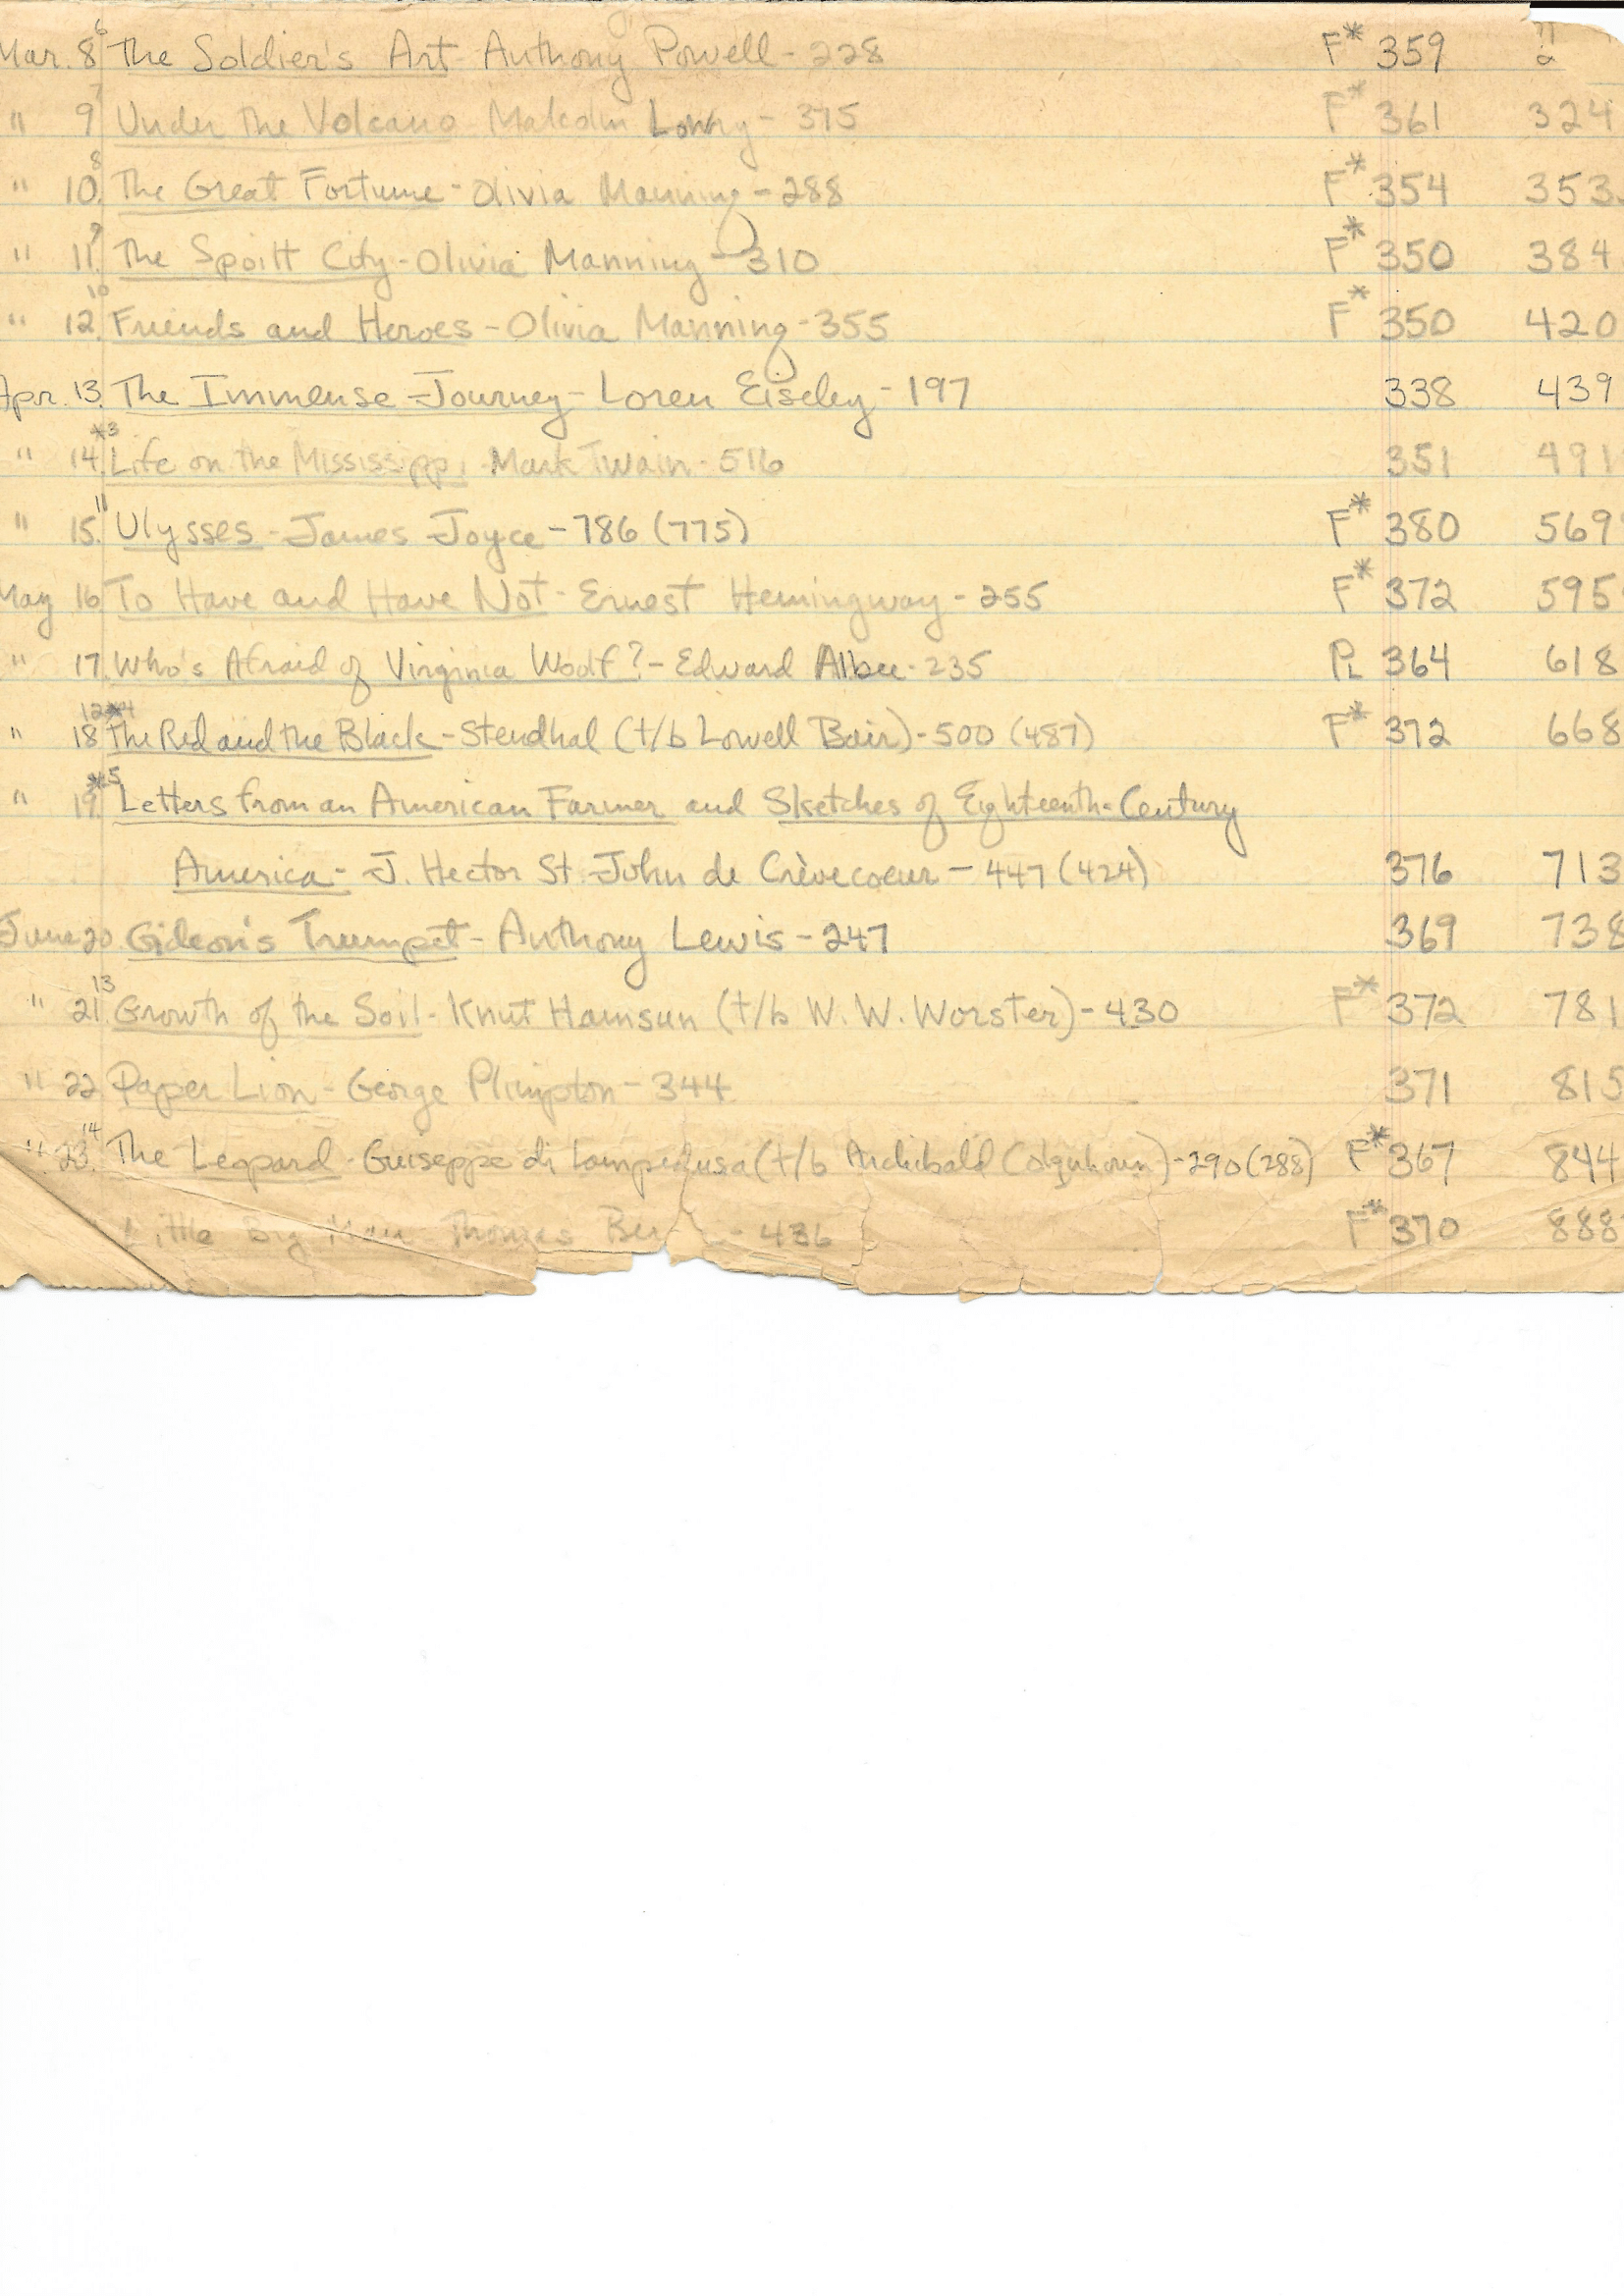 Mar. 8 6 The Soldier's Art - Anthony Powell - 228 F* 359
" 9 7 Under the Volcano Malcolm Lowry - 375 F* 361 324
" 10. 8 The Great Fortune - Olivia Manning - 288 F* 354 353
" 11. 9 The Spoilt City - Olivia Manning - 310 F* 350 384
" 12. 10 Friends and Heroes - Olivia Manning - 355 F* 350 420
Apr. 13. The Immense Journey - Loren Eiseley - 197 338 439
" 14. *3 Life on the Mississippi - Mark Twain - 516 351 491
" 15. 11 Ulysses - James Joyce - 786 (775) F* 380 569
May 16 To Have and Have Not - Ernest Hemingway - 255 F* 372 595
" 17. Who's Afraid of Virginia Woolf? - Edward Albee - 235 PL 364 618
" 18 12*4 The Red and the Black - Stendhal (t/b Lowell Bair) - 500 (487) F* 372 668
" 19. *5 Letters from an American Farmer and Sketches of Eighteenth-Century
America - J. Hector St. John de Crèvecoeur - 447 (424) 376 713
June 20. Gideon's Trumpet - Anthony Lewis - 247 369 738
" 21. 13 Growth of the Soil - Knut Hamsun (t/b W. W. Worster) - 430 F* 372 781
" 22 Paper Lion - George Plimpton - 344 371 815
" 23. 14 The Leopard - Guiseppe di Lampedusa (t/b Archibald Colquhoun) - 290 (288) F* 367 844
Little Big Man Thomas Ber - 436 F* 370 888